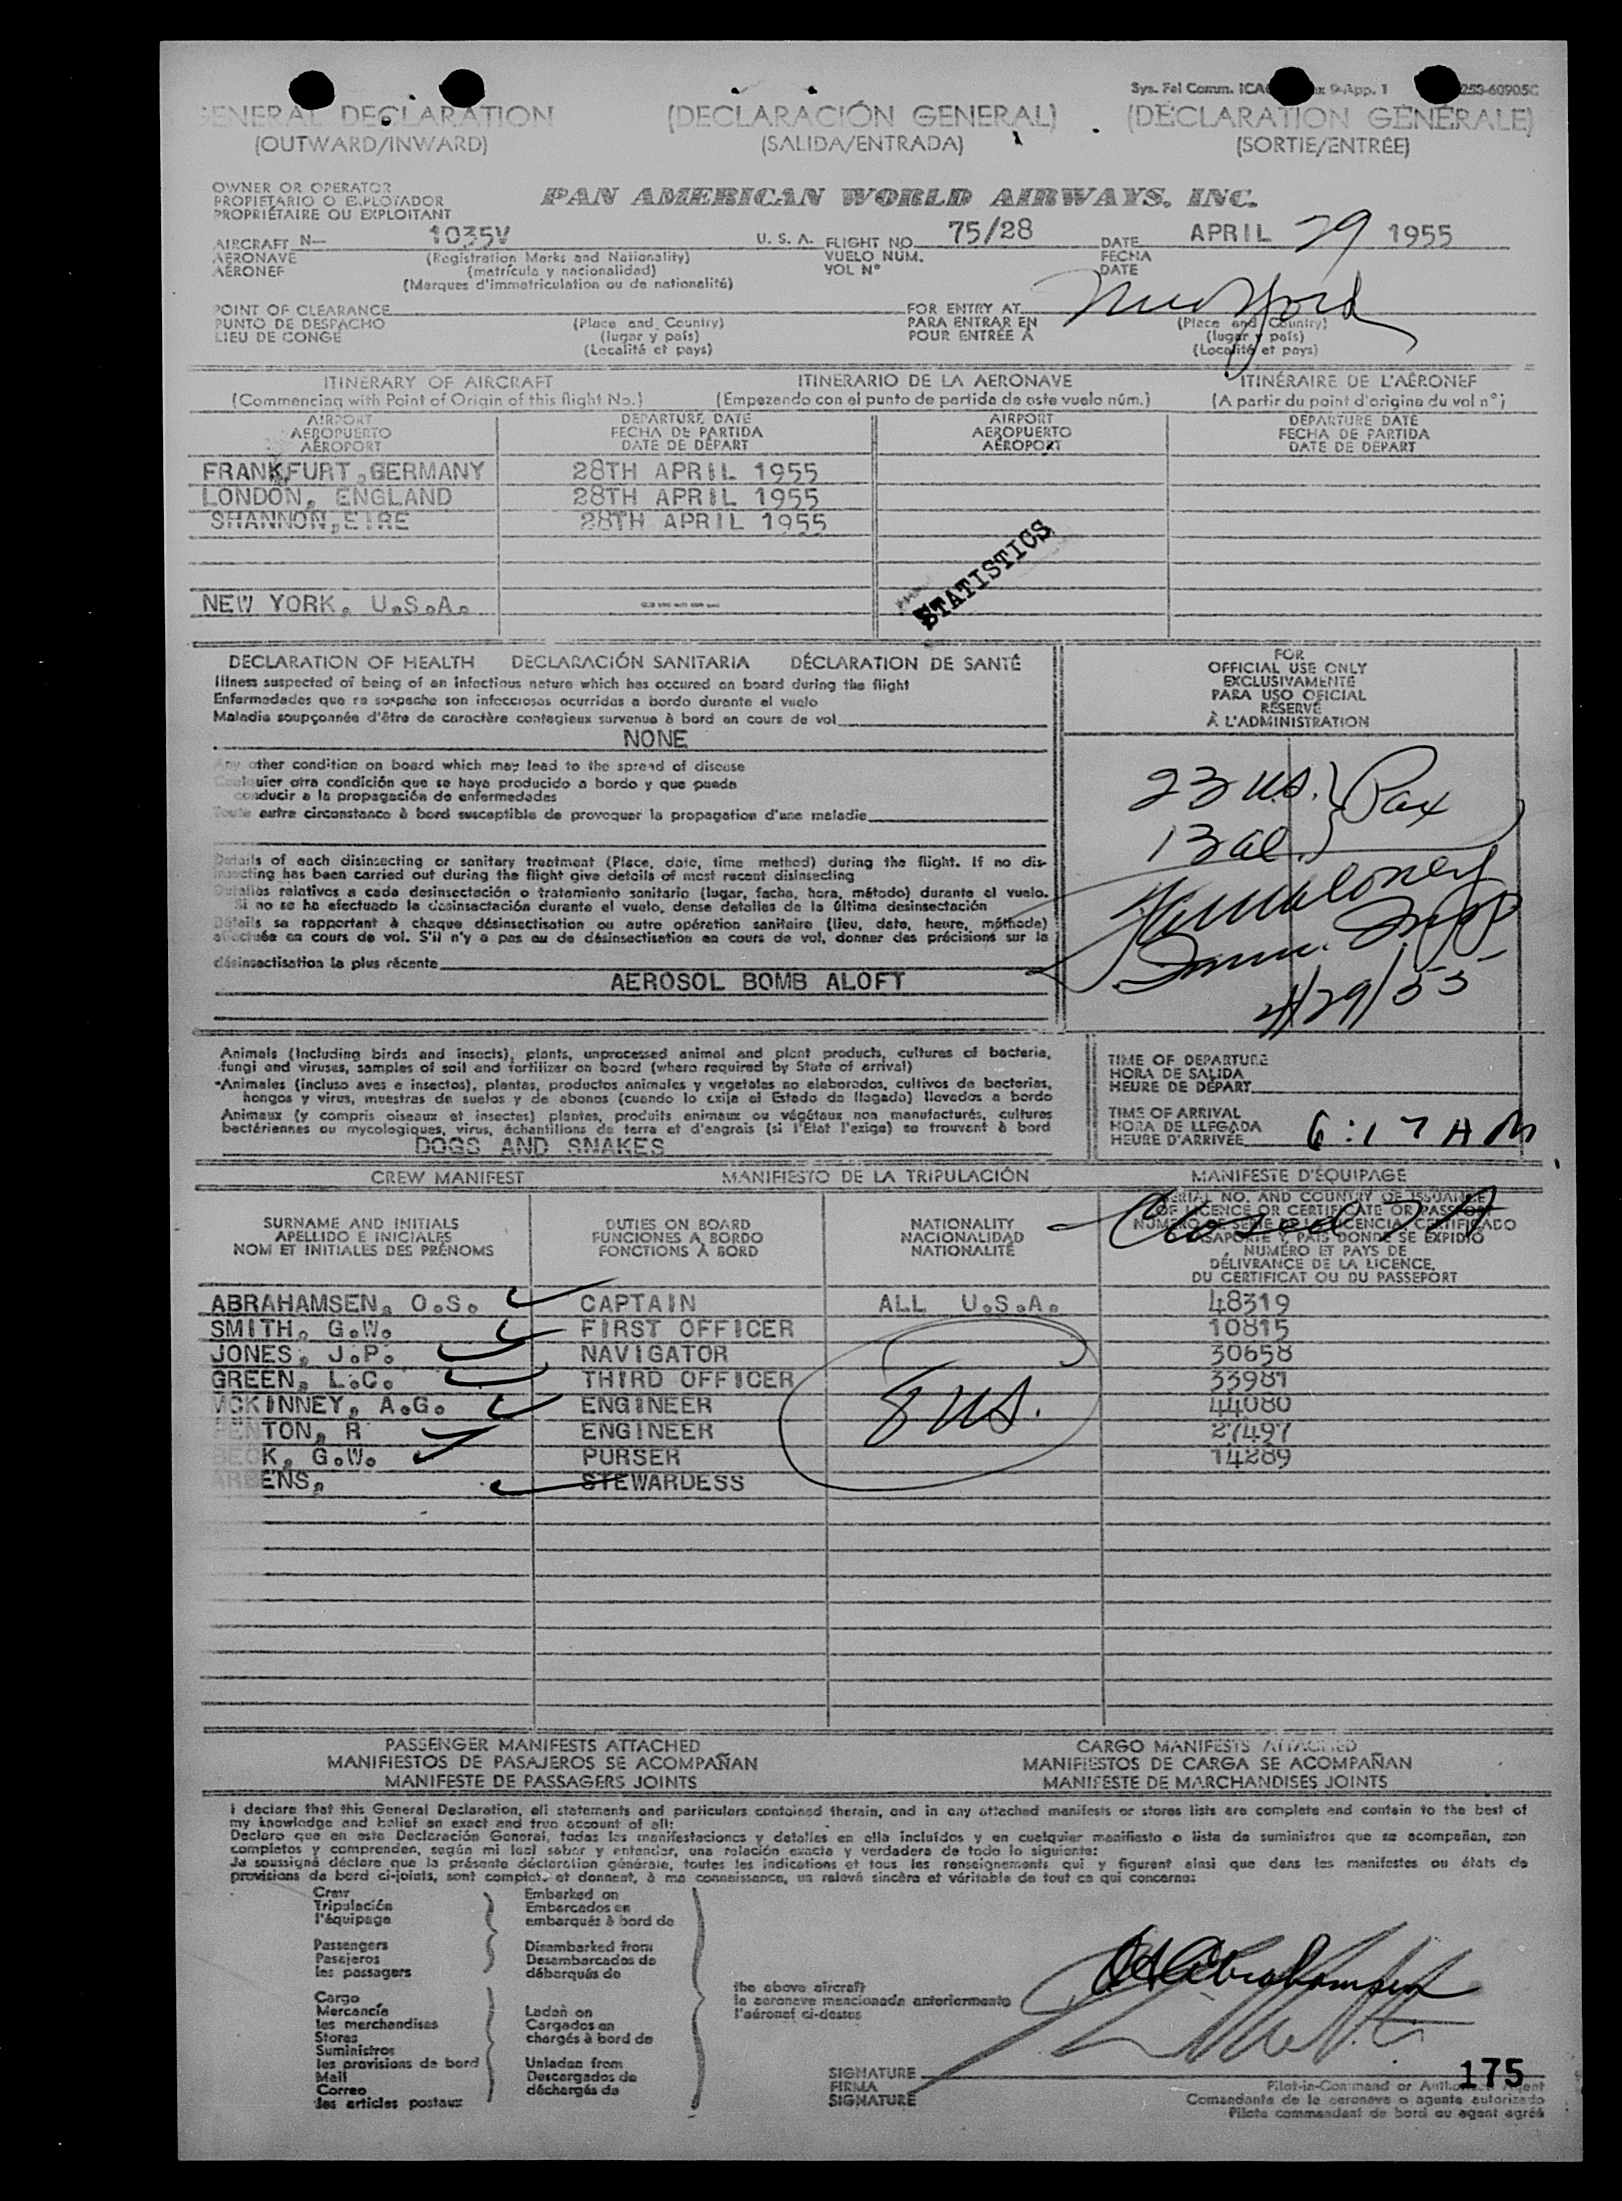 Sys. Fel Comm. ICA 9-App. 1 253-60905C
GENERAL DECLARATION (DECLARACIÓN GENERAL) (DÉCLARATION GÉNÉRALE)
(OUTWARD/INWARD) (SALIDA/ENTRADA) (SORTIE/ENTRÉE)
OWNER OR OPERATOR
PROPIETARIO O EXPLOTADOR PAN AMERICAN WORLD AIRWAYS, INC.
PROPRIÉTAIRE OU EXPLOITANT
AIRCRAFT N— 1035V U. S. A. FLIGHT NO. 75/28 DATE APRIL 29 1955
AERONAVE (Registration Marks and Nationality) VUELO NÚM. FECHA
AÉRONEF (matrícula y nacionalidad) VOL N° DATE
(Marques d'immatriculation ou de nationalité)
POINT OF CLEARANCE FOR ENTRY AT New York
PUNTO DE DESPACHO (Place and Country) PARA ENTRAR EN (Place and Country)
LIEU DE CONGÉ (lugar y país) POUR ENTRÉE À (lugar y país)
(Localité et pays) (Localité et pays)
ITINERARY OF AIRCRAFT ITINERARIO DE LA AERONAVE ITINÉRAIRE DE L'AÉRONEF
(Commencing with Point of Origin of this flight No.) (Empezando con el punto de partida de este vuelo núm.) (A partir du point d'origine du vol n°)
AIRPORT DEPARTURE DATE AIRPORT DEPARTURE DATE
AEROPUERTO FECHA DE PARTIDA AEROPUERTO FECHA DE PARTIDA
AÉROPORT DATE DE DÉPART AÉROPORT DATE DE DÉPART
FRANKFURT,GERMANY 28TH APRIL 1955
LONDON, ENGLAND 28TH APRIL 1955
SHANNON,EIRE 28TH APRIL 1955
STATISTICS
NEW YORK, U.S.A.
DECLARATION OF HEALTH DECLARACIÓN SANITARIA DÉCLARATION DE SANTÉ
Illness suspected of being of an infectious nature which has occured on board during the flight
Enfermedades que se sospecha son infecciosas ocurridas a bordo durante el vuelo
Maladie soupçonnée d'être de caractère contagieux survenue à bord en cours de vol
NONE
Any other condition on board which may lead to the spread of disease
Cualquier otra condición que se haya producido a bordo y que pueda
conducir a la propagación de enfermedades
Toute autre circonstance à bord susceptible de provoquer la propagation d'une maladie
Details of each disinsecting or sanitary treatment (Place, date, time method) during the flight. If no dis-
insecting has been carried out during the flight give details of most recent disinsecting
Detalles relativos a cada desinsectación o tratamiento sanitario (lugar, fecha, hora, método) durante el vuelo.
Si no se ha efectuado la desinsectación durante el vuelo, dense detalles de la última desinsectación
Détails se rapportant à chaque désinsectisation ou autre opération sanitaire (lieu, date, heure, méthode)
effectuée en cours de vol. S'il n'y a pas eu de désinsectisation en cours de vol, donner des précisions sur la
désinsectisation la plus récente
AEROSOL BOMB ALOFT
FOR
OFFICIAL USE ONLY
EXCLUSIVAMENTE
PARA USO OFICIAL
RÉSERVÉ
À L'ADMINISTRATION
23 U.S. } Pax
13 al. }
Maloney
Imm. Insp
4/29/55
Animals (Including birds and insects), plants, unprocessed animal and plant products, cultures of bacteria,
fungi and viruses, samples of soil and fertilizer on board (where required by State of arrival)
Animales (incluso aves e insectos), plantas, productos animales y vegetales no elaborados, cultivos de bacterias,
hongos y virus, muestras de suelos y de abonos (cuando lo exija el Estado de llegada) llevados a bordo
Animaux (y compris oiseaux et insectes) plantes, produits animaux ou végétaux non manufacturés, cultures
bactériennes ou mycologiques, virus, échantillons de terre et d'engrais (si l'Etat l'exige) se trouvent à bord
DOGS AND SNAKES
TIME OF DEPARTURE
HORA DE SALIDA
HEURE DE DÉPART
TIME OF ARRIVAL
HORA DE LLEGADA
HEURE D'ARRIVÉE 6:17 AM
CREW MANIFEST MANIFIESTO DE LA TRIPULACIÓN MANIFESTE D'ÉQUIPAGE
SURNAME AND INITIALS
APELLIDO E INICIALES
NOM ET INITIALES DES PRÉNOMS
DUTIES ON BOARD
FUNCIONES A BORDO
FONCTIONS À BORD
NATIONALITY
NACIONALIDAD
NATIONALITÉ
SERIAL NO. AND COUNTRY OF ISSUANCE
OF LICENCE OR CERTIFICATE OR PASSPORT
NÚMERO DE SERIE DE LA LICENCIA, CERTIFICADO
O PASAPORTE Y PAÍS DONDE SE EXPIDIÓ
NUMÉRO ET PAYS DE
DÉLIVRANCE DE LA LICENCE,
DU CERTIFICAT OU DU PASSEPORT
Closed
ABRAHAMSEN, O.S. CAPTAIN ALL U.S.A. 48319
SMITH, G.W. FIRST OFFICER 10815
JONES, J.P. NAVIGATOR 30658
GREEN, L.C. THIRD OFFICER 33981
MCKINNEY, A.G. ENGINEER 44080
FENTON, R ENGINEER 27497
BECK, G.W. PURSER 14289
ARBENS, STEWARDESS
8 US.
PASSENGER MANIFESTS ATTACHED CARGO MANIFESTS ATTACHED
MANIFIESTOS DE PASAJEROS SE ACOMPAÑAN MANIFIESTOS DE CARGA SE ACOMPAÑAN
MANIFESTE DE PASSAGERS JOINTS MANIFESTE DE MARCHANDISES JOINTS
I declare that this General Declaration, all statements and particulars contained therein, and in any attached manifests or stores lists are complete and contain to the best of
my knowledge and belief an exact and true account of all:
Declaro que en esta Declaración General, todas las manifestaciones y detalles en ella incluídos y en cualquier manifiesto o lista de suministros que se acompañan, son
completos y comprenden, según mi leal saber y entender, una relación exacta y verdadera de todo lo siguiente:
Je soussigné déclare que la présente déclaration générale, toutes les indications et tous les renseignements qui y figurent ainsi que dans les manifestes ou états de
provisions de bord ci-joints, sont complet, et donnent, à ma connaissance, un relevé sincère et véritable de tout ce qui concerne:
Crew Embarked on
Tripulación Embarcados en
l'équipage embarqués à bord de
Passengers Disembarked from
Pasajeros Desembarcados de
les passagers débarqués de
the above aircraft
la aeronave mencionada anteriormente
l'aéronef ci-dessus
Cargo
Mercancía Laden on
les marchandises Cargados en
Stores chargés à bord de
Suministros
les provisions de bord Unladen from
Mail Descargados de
Correo déchargés de
les articles postaux
OS Abrahamsen
SIGNATURE
FIRMA
SIGNATURE
175
Pilot-in-Command or Authorized Agent
Comandante de la aeronave o agente autorizado
Pilote commandant de bord ou agent agréé